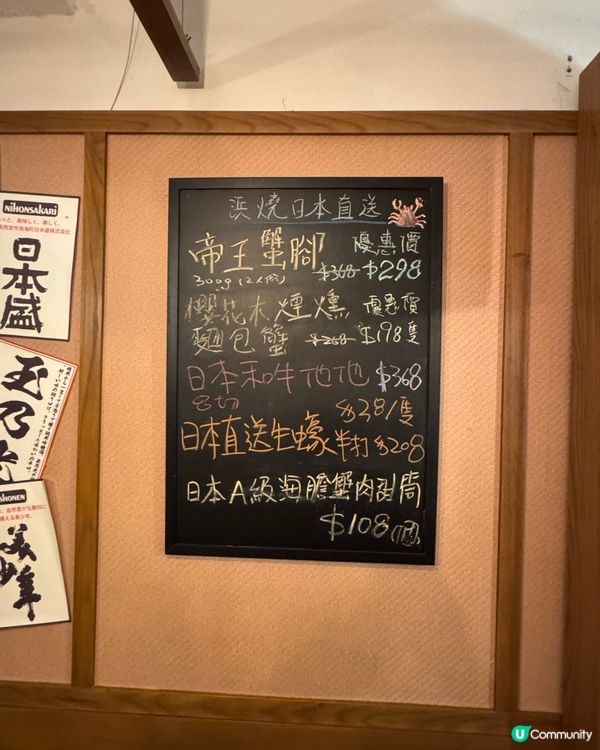 浜燒日本直送
帝王蟹腳 優惠價
300g (2人份) $368 $298
櫻花木煙燻 優惠價
麵包蟹 $268 $198隻
日本和牛他他 $368
8切
$38/隻
日本直送生蠔半打 $208
日本A級海膽蟹肉甜筒
$108(1個)
NIHONSAKARI
日本盛
玉乃光
SHONEN
美少年
U Community